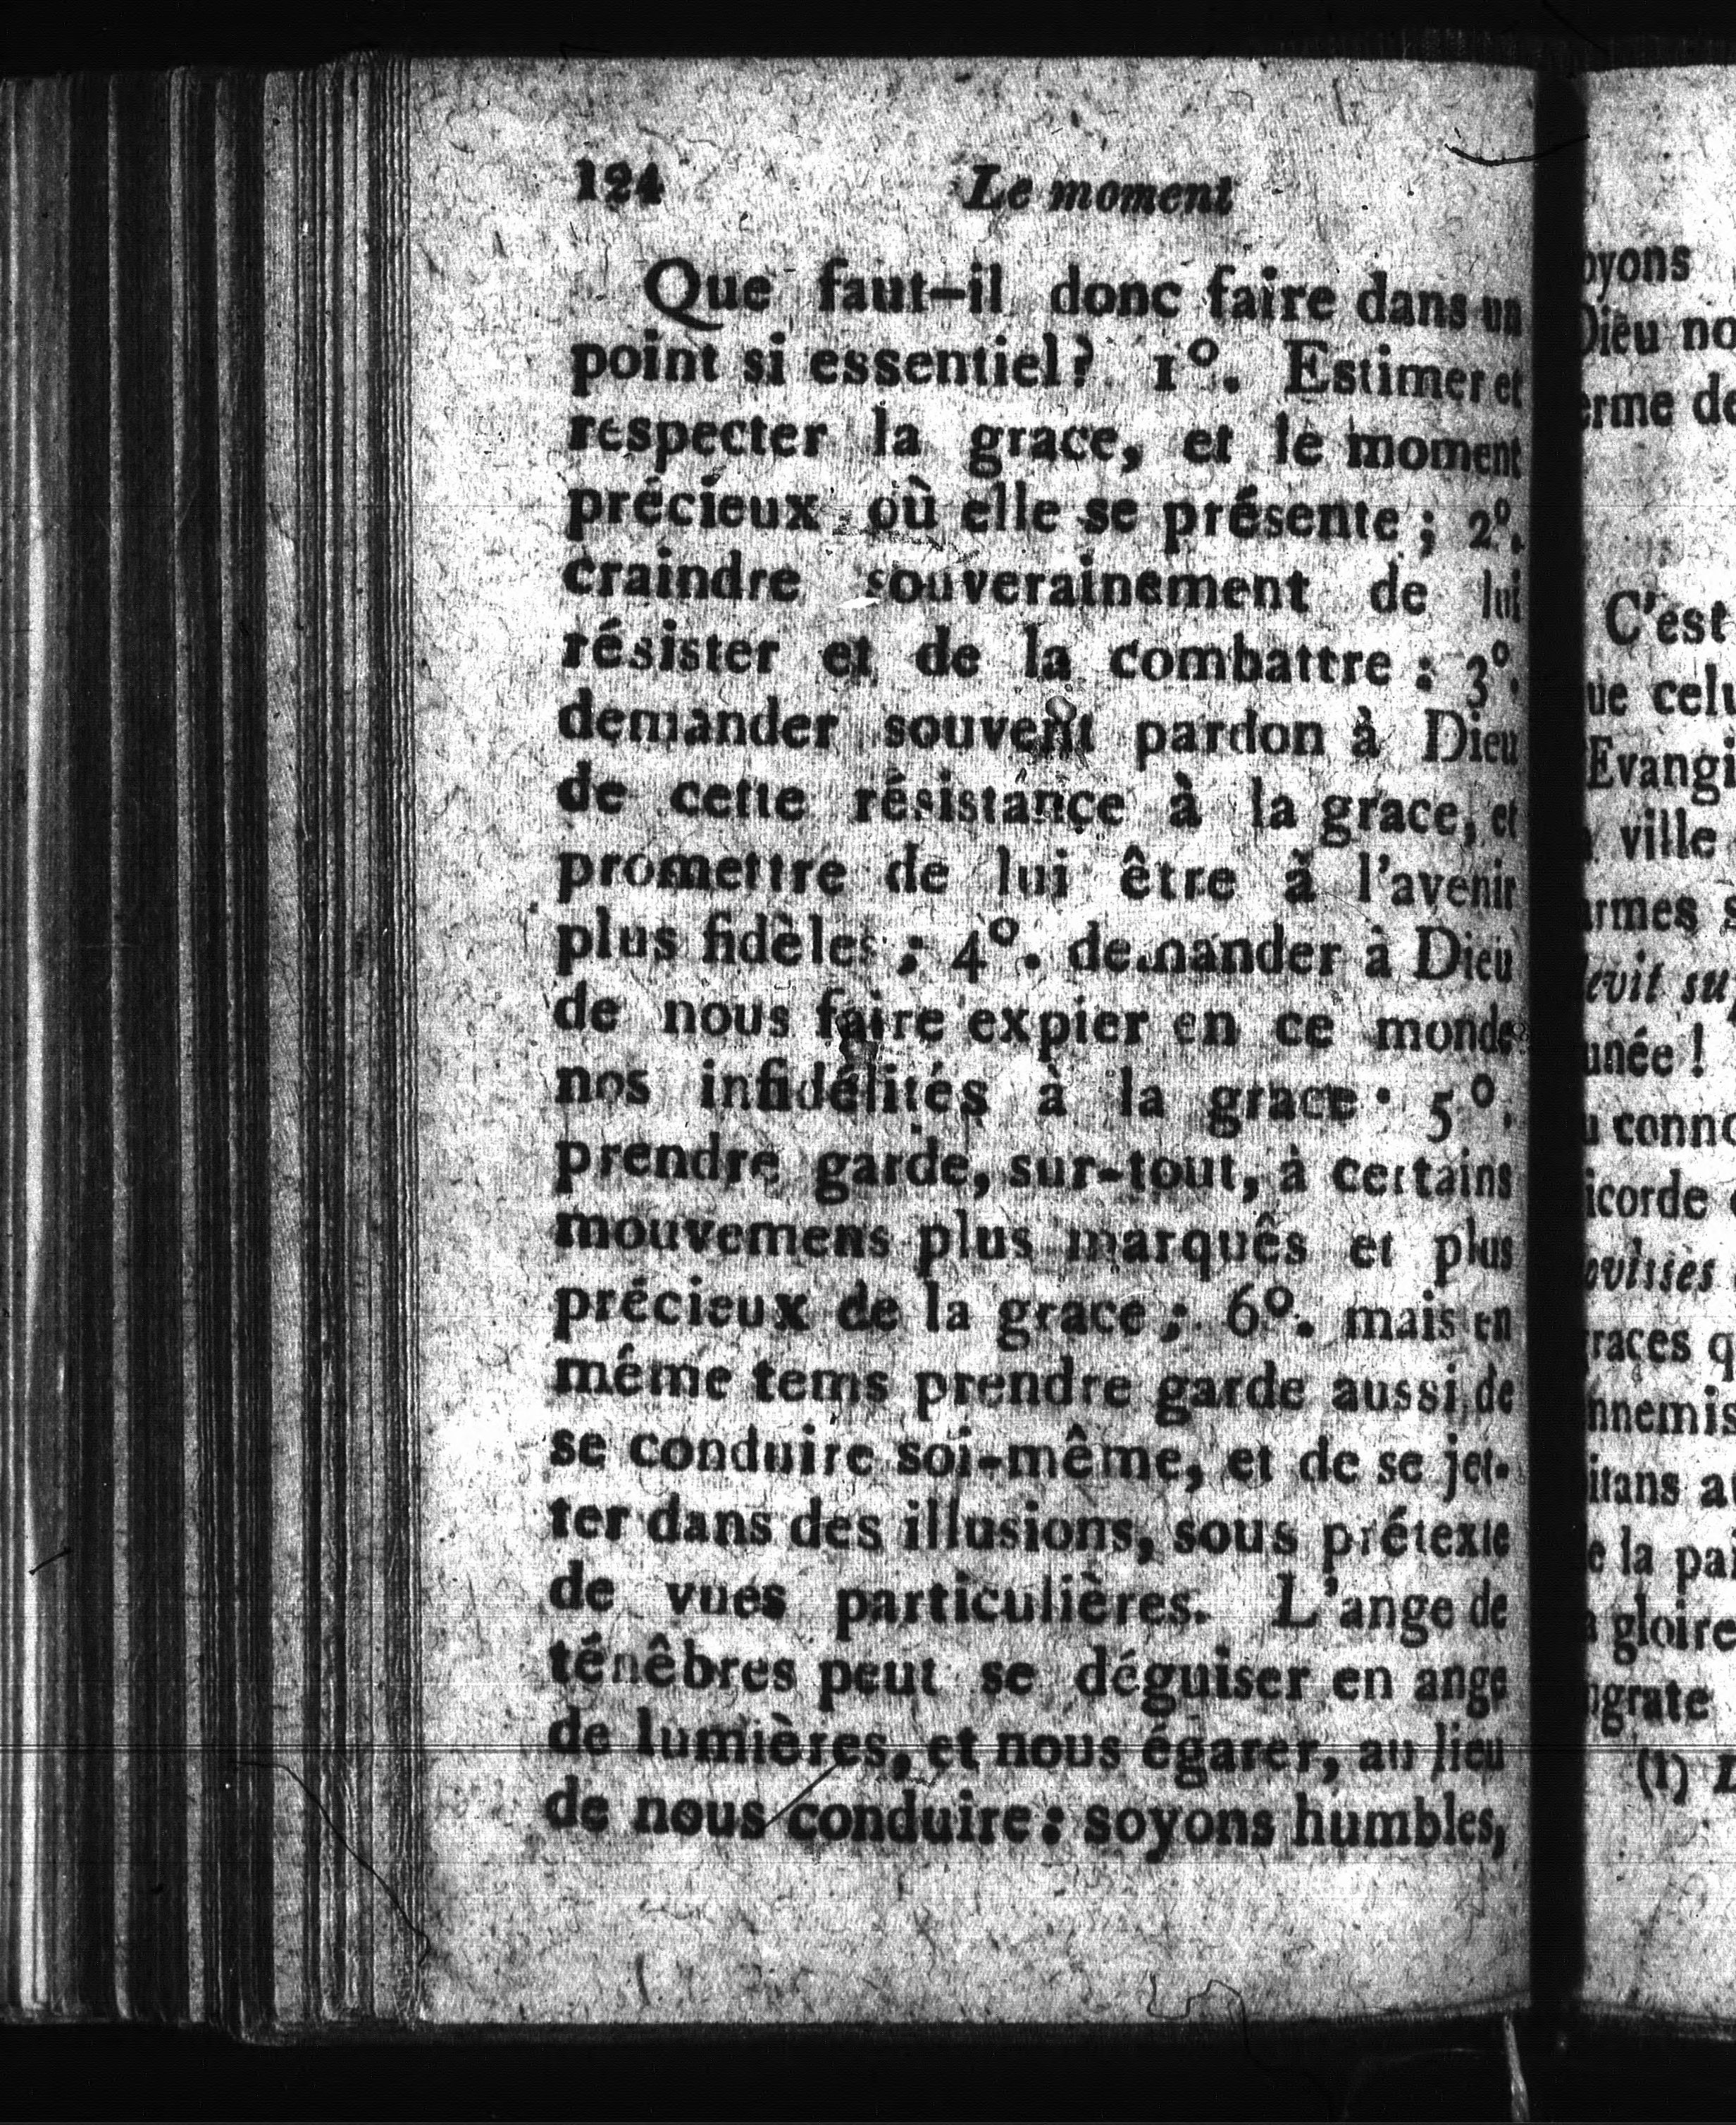 124 Le moment
Que faut-il donc faire dans un
point si essentiel? 1º. Estimer et
respecter la grace, et le moment
précieux où elle se présente ; 2º.
craindre souverainement de lui
résister et de la combattre : 3º.
demander souvent pardon à Dieu
de cette résistance à la grace, et
promettre de lui être à l'avenir
plus fidèles ; 4º. demander à Dieu
de nous faire expier en ce monde
nos infidélités à la grace : 5º.
prendre garde, sur-tout, à certains
mouvemens plus marqués et plus
précieux de la grace ; 6º. mais en
même tems prendre garde aussi de
se conduire soi-même, et de se jet-
ter dans des illusions, sous prétexte
de vues particulières. L'ange de
ténêbres peut se déguiser en ange
de lumières, et nous égarer, au lieu
de nous conduire : soyons humbles,
oyons
Dieu no
erme de
C'est
ue celu
Evangi
ville
armes
evit su
unée !
u conno
icorde
ovisses
races q
nnemis
itans a
e la pai
gloire
ngrate
(1)